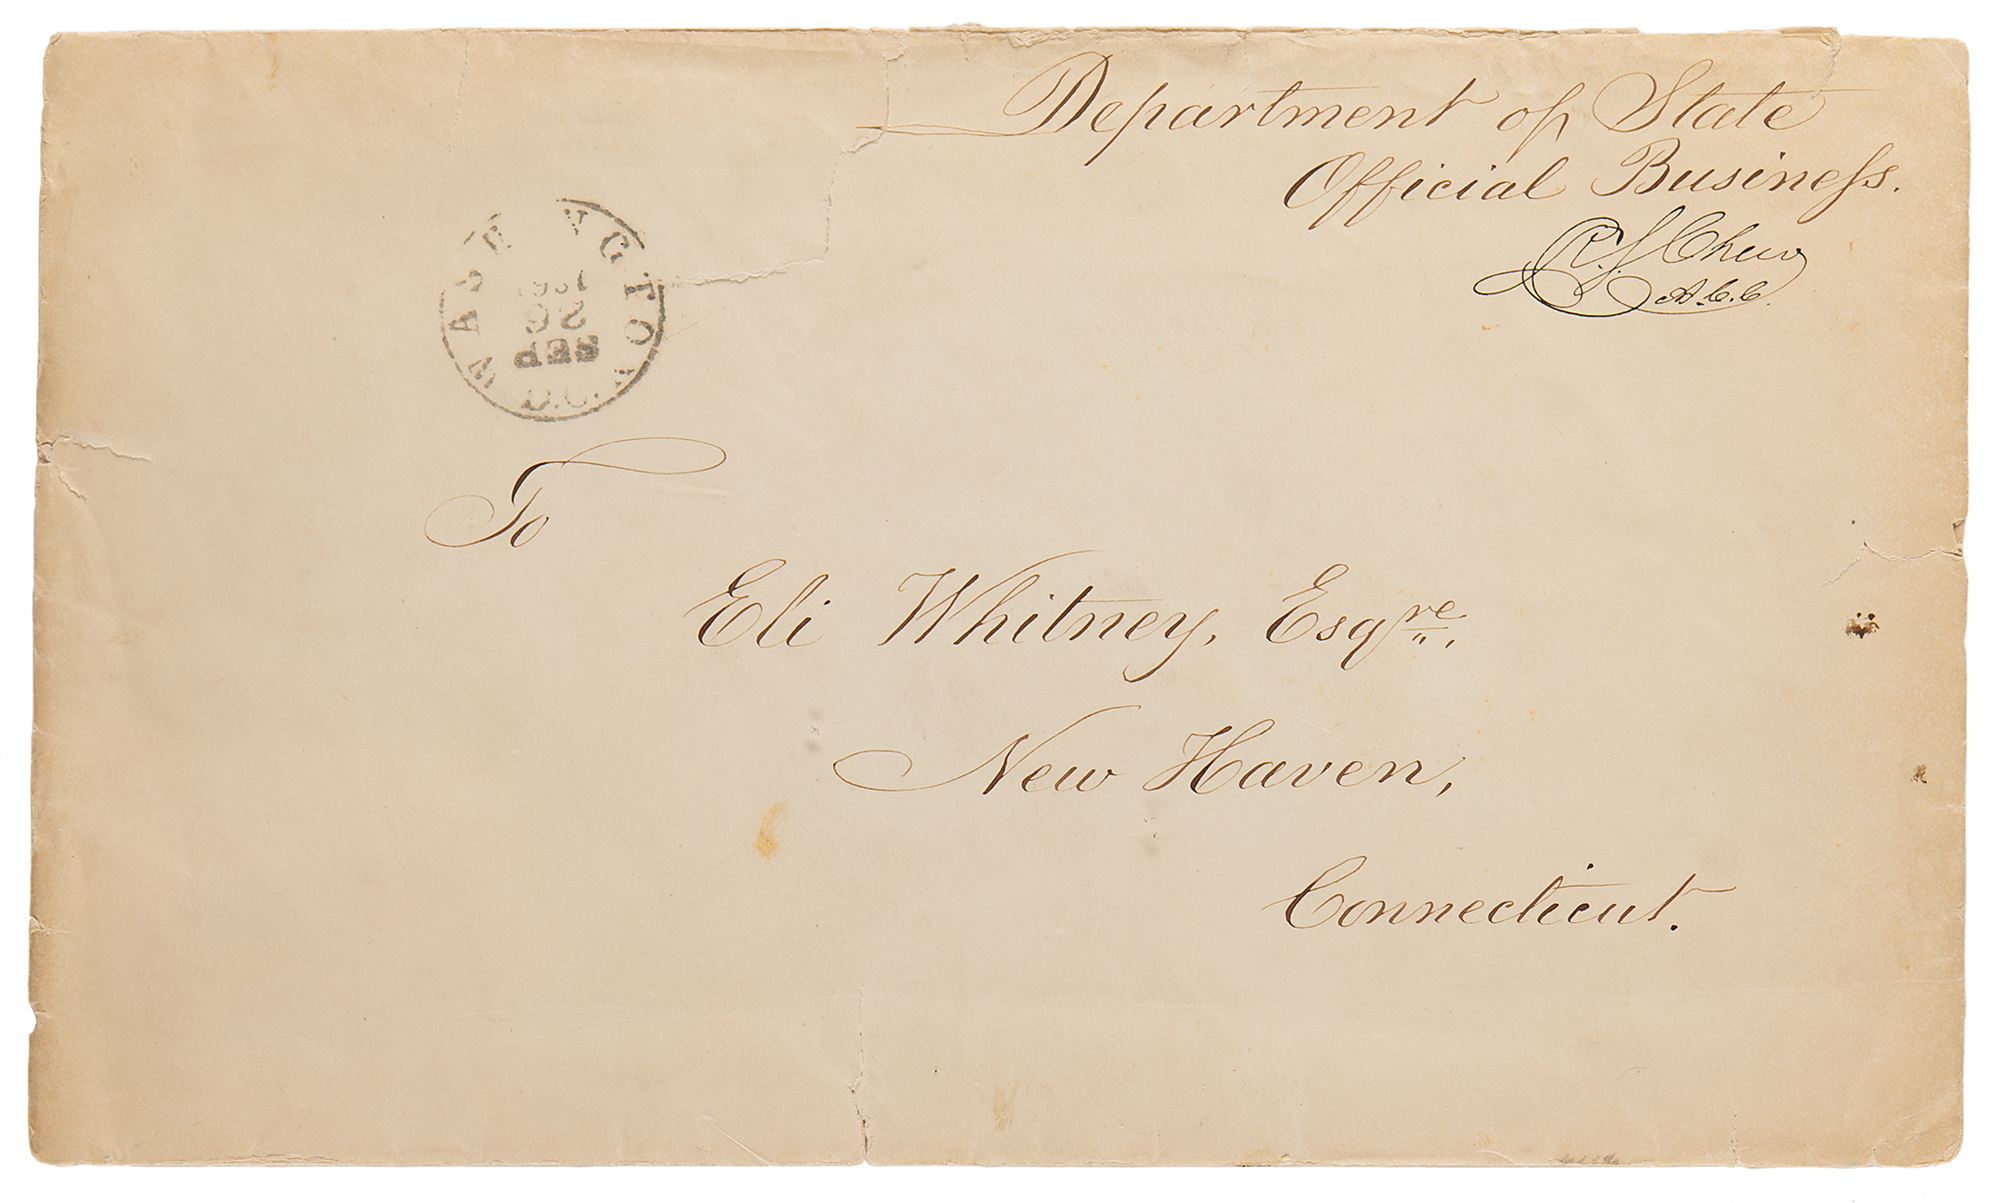 Department of State
Official Business.
R. S. Chew
A.C.C.
WASHINGTON
D.C.
SEP
To
Eli Whitney, Esqre.
New Haven,
Connecticut.